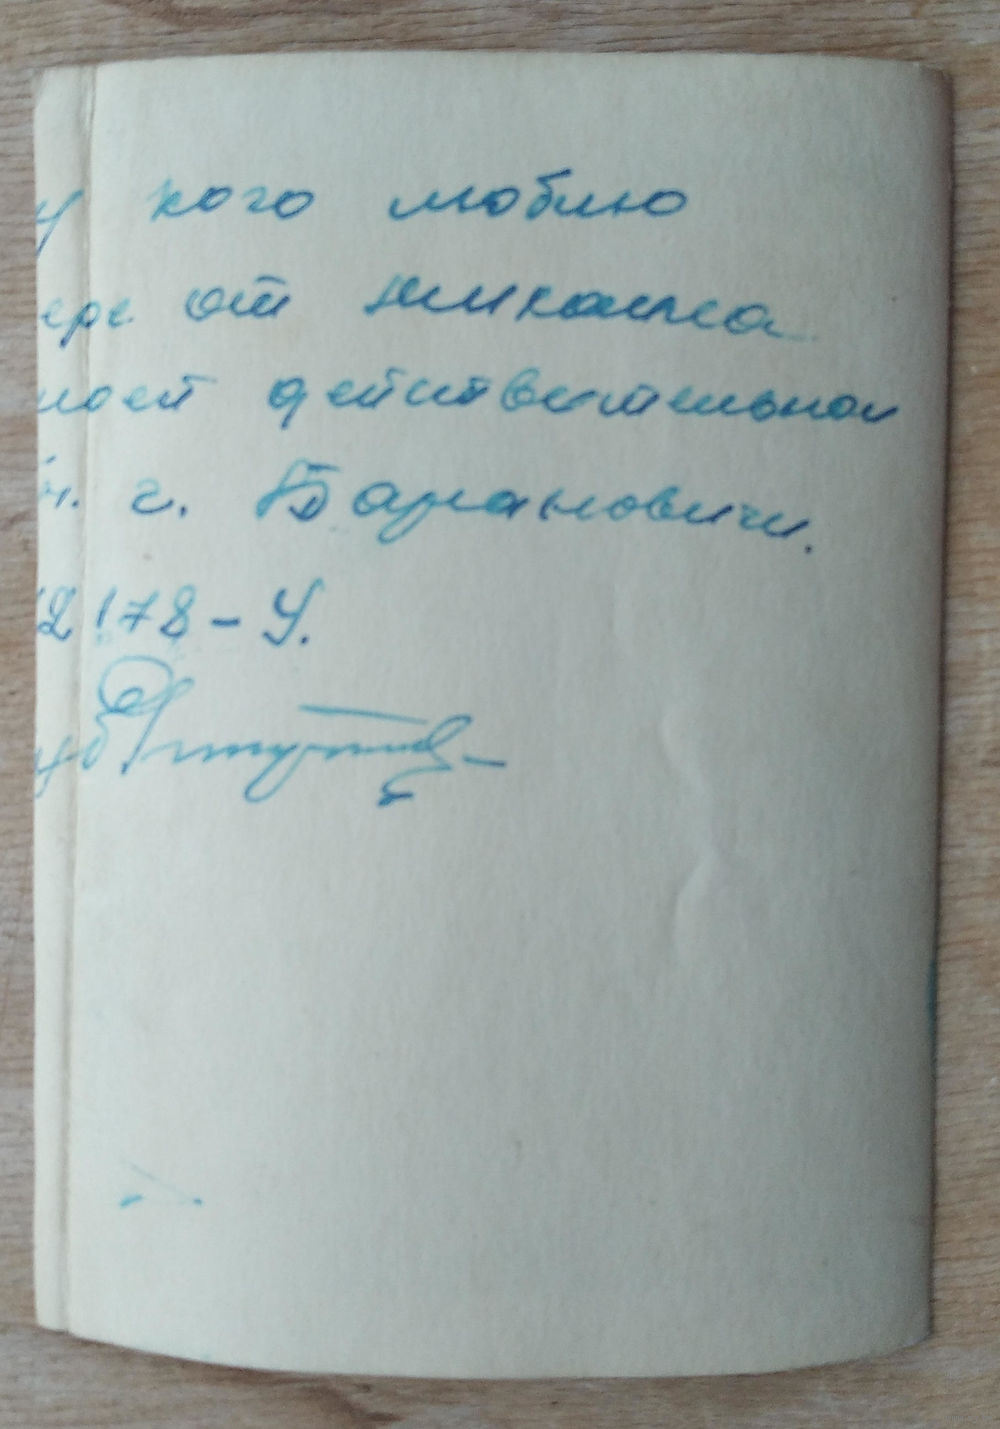 у кого люблю
ере от Николая
моей действительной
г. Барановичи.
12 178 - У.